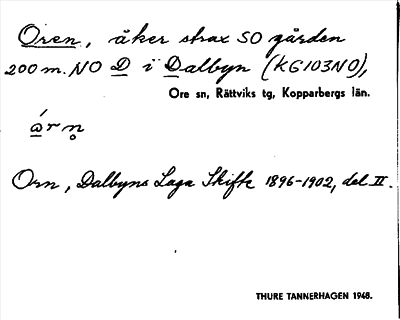 Oren, åker strax SO gården
200 m. NO D i Dalbyn (KG103NO),
Ore sn, Rättviks tg, Kopparbergs län.
á̱rn̥
Orn, Dalbyns Laga Skifte 1896-1902, del II.
THURE TANNERHAGEN 1948.